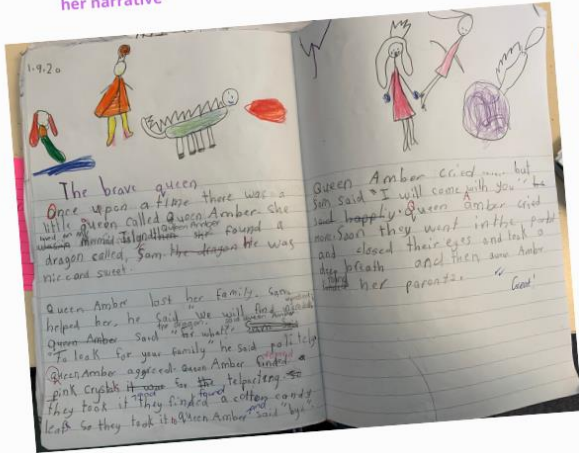 her narrative
1.9.20
The brave queen
Once upon a time there was a
little queen called Queen Amber. She
lived on an Island Queen Amber found a
dragon called, Sam. He was
nice and sweet.
Queen Amber lost her family. Sam
helped her, he said "We will find
Queen Amber said "for what"
the dragon, said Queen Amber
"To look for your family" he said politely
Queen Amber aggreed. Queen Amber finded a
pink crystle it was for telporting. So
they took it they finded a cotton candy
leaf so they took it Queen Amber said "bye".
and
Queen Amber cried...... but
Sam said "I will come with you" he
said happly. Queen amber cried
more. Soon they went in the portal
and closed their eyes and leak a
deep breath and then Amber
her parents.
Great!